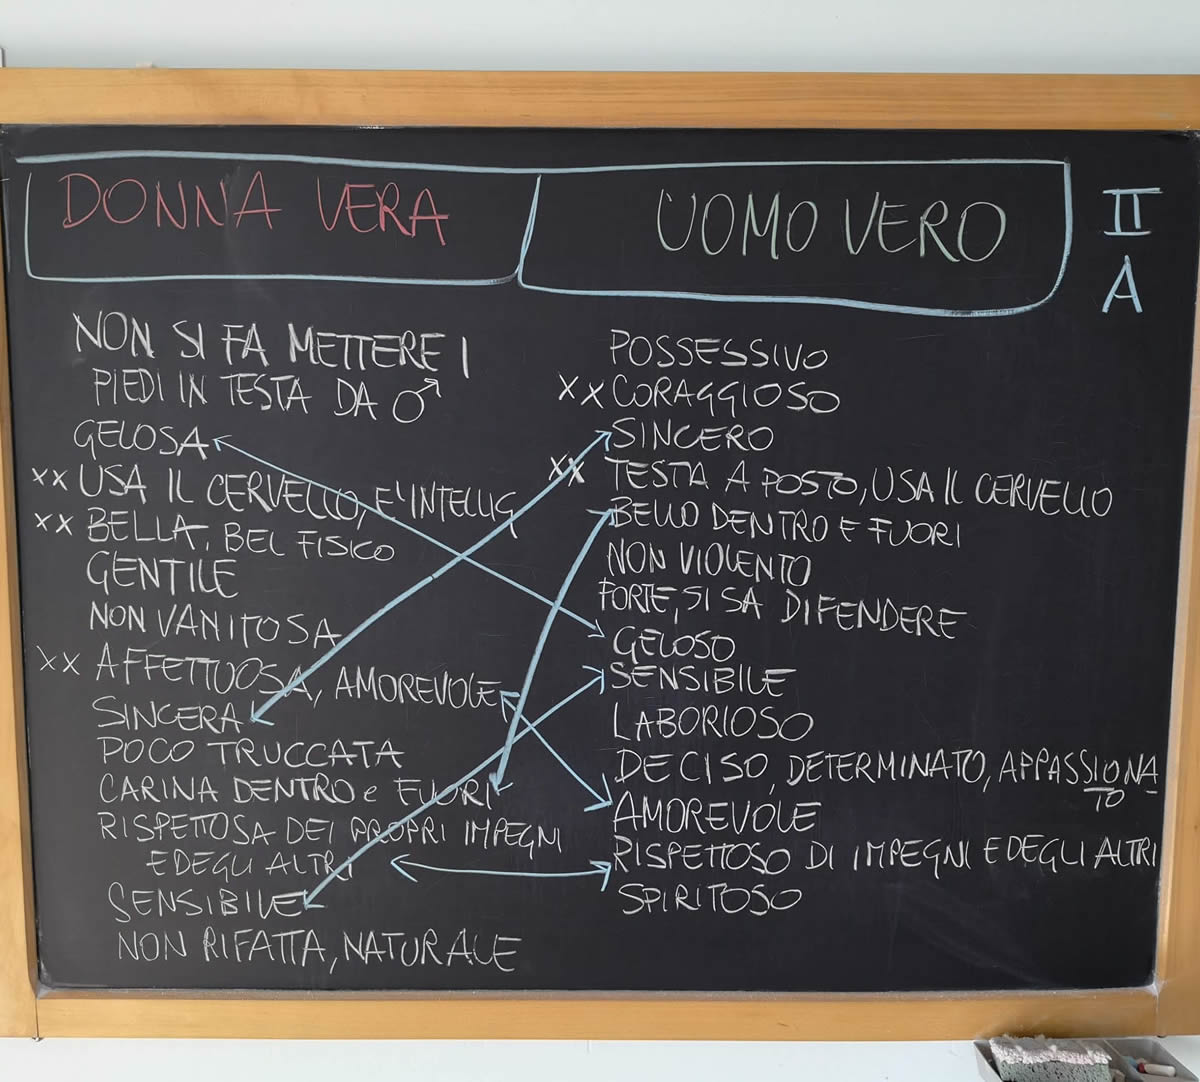 DONNA VERA
UOMO VERO
II
A
NON SI FA METTERE I
PIEDI IN TESTA DA ♂
GELOSA
xx USA IL CERVELLO, E' INTELLIG
xx BELLA, BEL FISICO
GENTILE
NON VANITOSA
xx AFFETTUOSA, AMOREVOLE
SINCERA
POCO TRUCCATA
CARINA DENTRO e FUORI
RISPETTOSA DEI PROPRI IMPEGNI
E DEGLI ALTRI
SENSIBILE
NON RIFATTA, NATURALE
POSSESSIVO
xx CORAGGIOSO
SINCERO
xx TESTA A POSTO, USA IL CERVELLO
BELLO DENTRO E FUORI
NON VIOLENTO
FORTE, SI SA DIFENDERE
GELOSO
SENSIBILE
LABORIOSO
DECISO, DETERMINATO, APPASSIONA
TO
AMOREVOLE
RISPETTOSO DI IMPEGNI E DEGLI ALTRI
SPIRITOSO